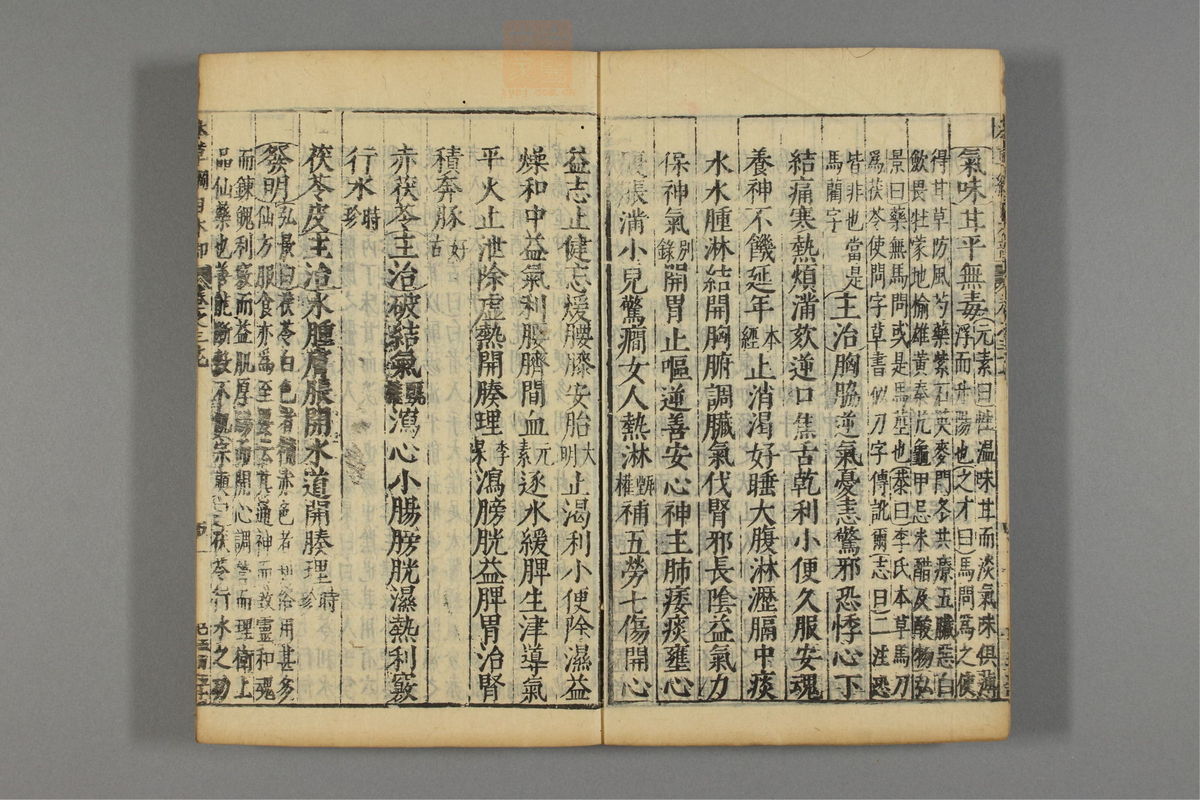 氣味甘平無毒元素曰性溫味甘而淡氣味俱薄
浮而升陽也之才曰馬問爲之使
得甘草防風芍藥紫石英麥門冬共療五臟惡白
斂畏牡蒙地榆雄黃秦艽龜甲忌米醋及酸物弘
景曰藥無馬問或是馬莖也恭曰李氏本草馬刀
爲茯苓使問字草書似刀字傳訛爾志曰二注恐
皆非也當是
馬藺字
主治胸脇逆氣憂恚驚邪恐悸心下
結痛寒熱煩滿欬逆口焦舌乾利小便久服安魂
養神不饑延年本經止消渴好睡大腹淋瀝膈中痰
水水腫淋結開胸腑調臟氣伐腎邪長陰益氣力
保神氣別錄開胃止嘔逆善安心神主肺痿痰壅心
腹脹滿小兒驚癇女人熱淋甄權補五勞七傷開心
益志止健忘煖腰膝安胎大明止渴利小便除濕益
燥和中益氣利腰臍間血元素逐水緩脾生津導氣
平火止泄除虛熱開腠理李杲瀉膀胱益脾胃治腎
積奔豚好古
赤茯苓主治破結氣甄權瀉心小腸膀胱濕熱利竅
行水時珍
茯苓皮主治水腫膚脹開水道開腠理時珍
發明弘景曰茯苓白色者補赤色者利俗用甚多
仙方服食亦爲至要云其通神而致靈和魂
而鍊魄利竅而益肌厚腸而開心調營而理衛上
品仙藥也善能斷穀不飢宗奭曰茯苓行水之功